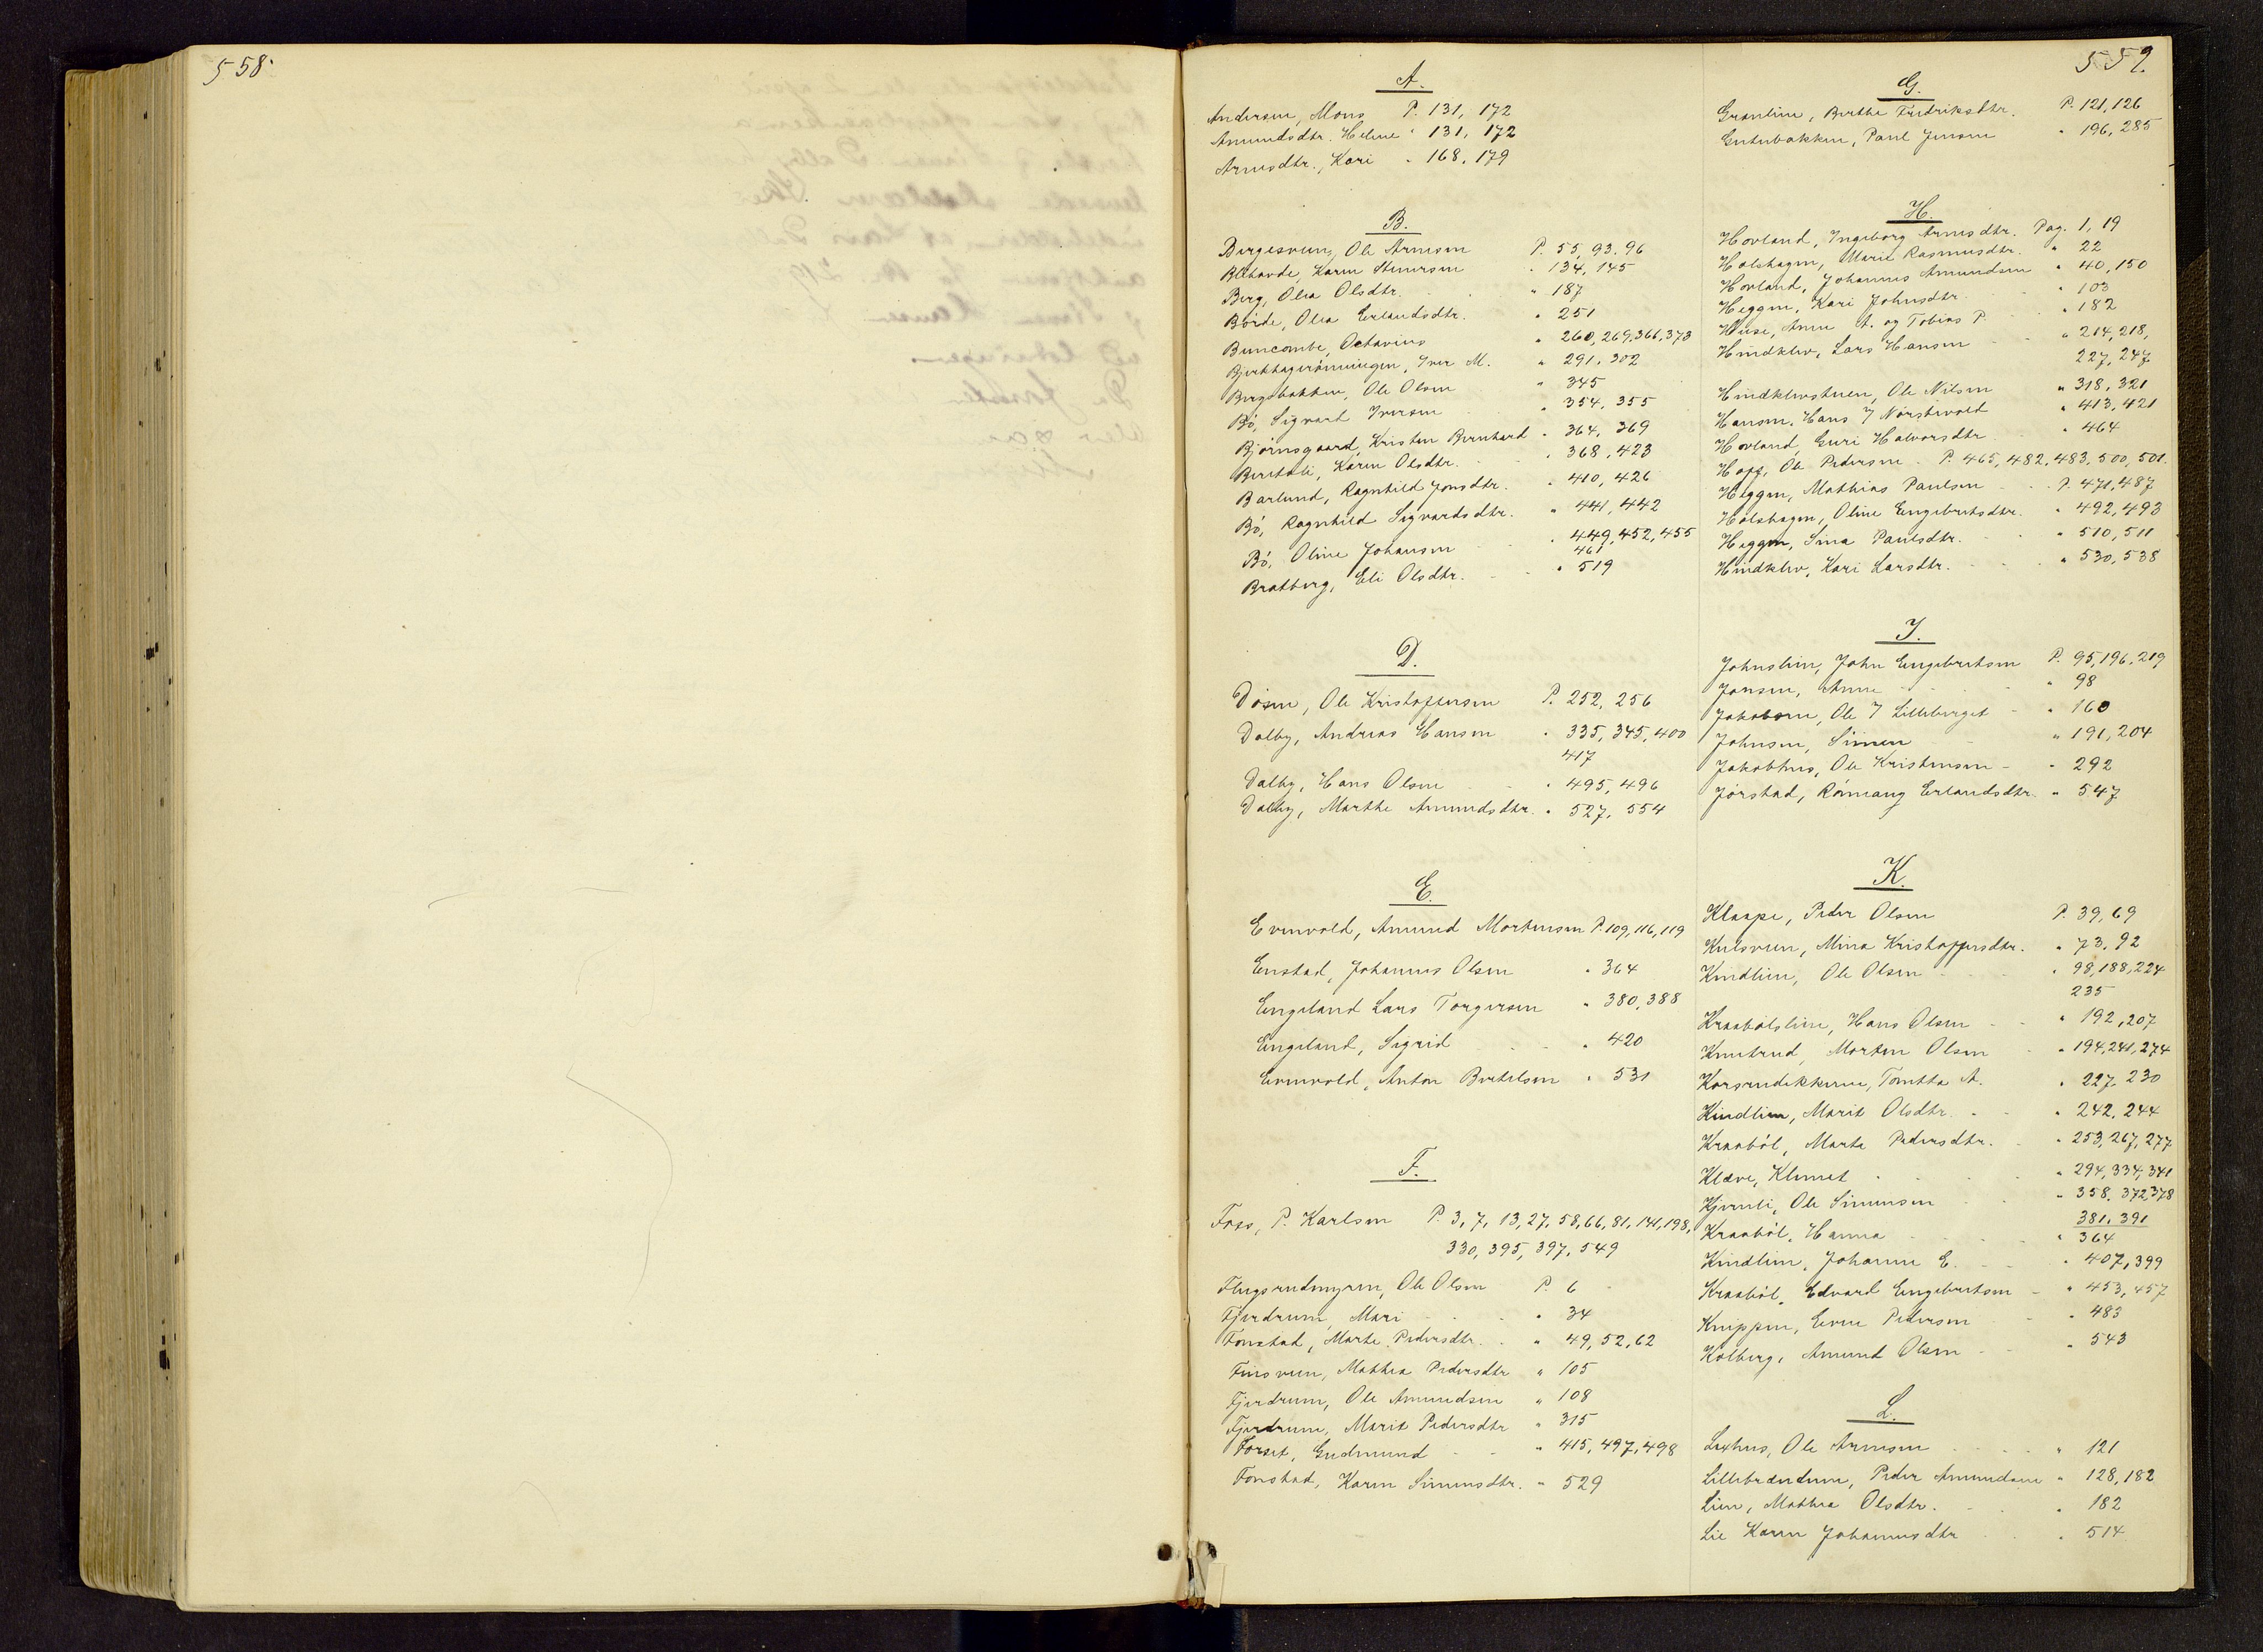 558
559.
A.
Andersen, Mons P. 131, 172
Amundsdtr. Helene " 131, 172
Arnesdtr., Kari " 168, 179
B.
Bergesveen, Ole Arnesen P. 55, 93, 96
Karen Steenersen " 134, 145
Berg, Olea Olsdtr. " 187
Börde, Olea Erlandsdtr. " 251
Buncombe, Octavius " 260, 269, 366, 373
Iver M. " 291, 302
Bergsbakken, Ole Olsen " 345
Bö, Sigvart Iversen " 354, 355
Björnsgaard, Kristen Bernhard " 364, 369
Karen Olsdtr. " 368, 423
Barlund, Ragnhild Jonsdtr. " 410, 426
Bö, Ragnhild Sigvardsdtr. " 441, 442
Bö, Oline Johansen " 449, 452, 455
461
Bratberg, Eli Olsdtr. " 519
D.
Dösen, Ole Kristoffersen P. 252, 256
Dalby, Andreas Hansen " 335, 345, 400
417
Dalby, Hans Olsen " 495, 496
Dalby, Marthe Amundsdtr. " 527, 554
E.
Evenvold, Amund Mortensen P. 109, 116, 119
Enstad, Johannes Olsen " 364
Engeland Lars Torgersen " 380, 388
Engeland, Sigrid " 420
Evenvold, Anton Bertelsen " 531
F.
Foss, P. Karlsen P. 3, 7, 13, 27, 58, 66, 81, 141, 198,
330, 395, 397, 549
Flugsrudmyren, Ole Olsen P. 6
Fjerdrum, Mari " 34
Fonstad, Marte Pedersdtr. " 49, 52, 62
Finsveen, Mathea Pedersdtr " 105
Fjerdrum, Ole Amundsen " 108
Fjerdrum, Marit Pedersdtr " 315
Forset, Gudmund " 415, 497, 498
Fonstad, Karen Simensdtr. " 529
G.
Grønlien, Berthe Fredriksdtr. P. 121, 126
Gutubakken, Paul Jensen " 196, 285
H.
Hovland, Ingeborg Arnesdtr. Pag. 1, 19
Holshagen, Marie Rasmusdtr. " 22
Hovland, Johannes Amundsen " 40, 150
Heggen, Kari Johnsdtr. " 103
Huse, Anne A. og Tobias P. " 182
Hindklev, Lars Hansen " 214, 218,
227, 247
Hindklevstuen, Ole Nilsen " 318, 321
Hansen, Hans 7 Nörstevold " 413, 421
Hovland, Guri Halvorsdtr " 464
Hoff, Ole Pedersen P. 465, 482, 483, 500, 501.
Heggen, Mathias Paulsen P. 471, 487
Holshagen, Oline Engebretsdtr. " 492, 493
Heggen, Sina Paulsdtr. " 510, 511
Hindklev, Kari Larsdtr. " 530, 538
J.
Johnslien, John Engebretsen P. 95, 196, 219
Jonsen, Anne " 98
Jakobsen, Ole 7 Lilleberget " 160
Johnsen, Simen " 191, 204
Jakobhus, Ole Kristensen " 292
Jörstad, Rönnaug Erlandsdtr. " 547
K.
Klaape, Peder Olsen P. 39, 69
Kulsveen, Mina Kristoffersdtr. " 73, 92
Kindlien, Ole Olsen " 98, 188, 224
235
Kraabölslien, Hans Olsen " 192, 207
Knutrud, Morten Olsen " 194, 241, 274
Tomtta A. " 227, 230
Kindlien, Marit Olsdtr. " 242, 244
Kraaböl, Marte Pedersdtr. " 253, 267, 277
Kleve, Klemet " 294, 334, 341
Kjernli, Ole Simensen " 358, 372, 378
381, 391
Kraaböl, Hanna " 364
Kindlien, Johanne E. " 407, 399
Kraaböl, Edvard Engebretsen " 453, 457
Knippen, Even Pedersen " 483
Kolberg, Amund Olsen " 543
L.
Laxhus, Ole Arnesen " 121
Lillebrænden, Peder Amundsen " 128, 182
Lien, Mathea Olsdtr. " 182
Lie Karen Johannesdtr " 514